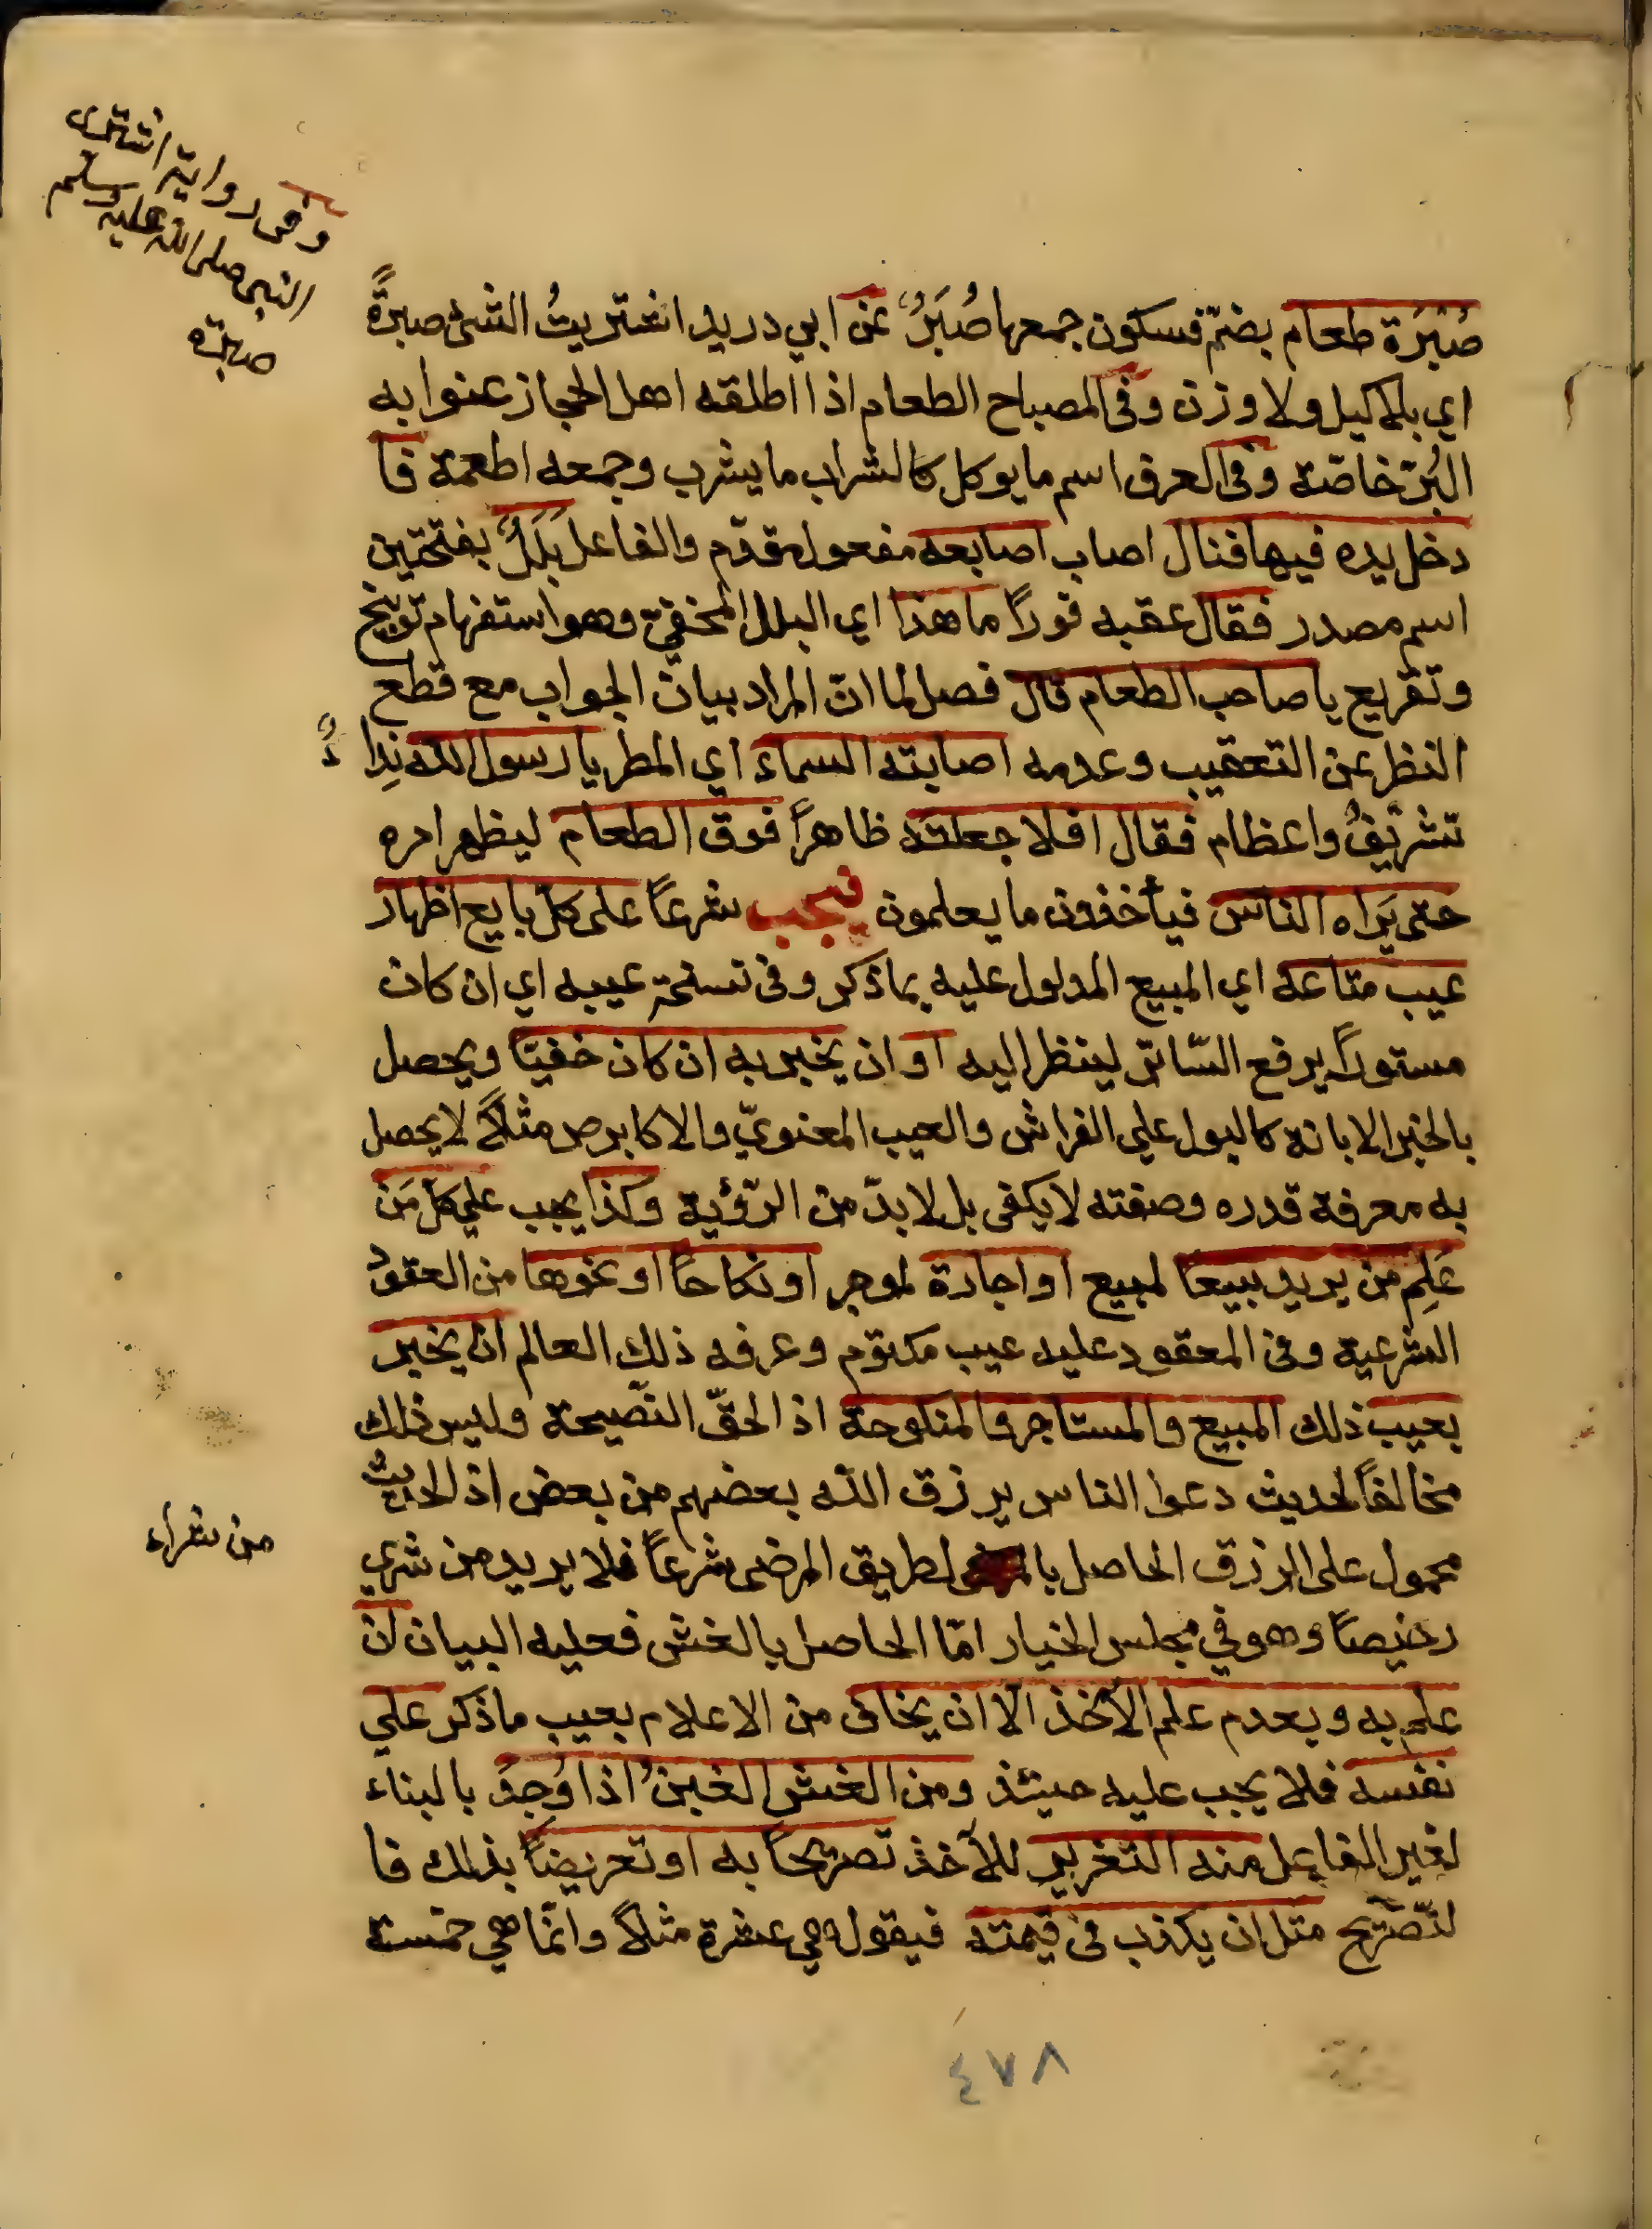 وفى رواية اشترى
النبى صلى الله عليه وسلم
صبرة
صُبْرَة طعام بضمّ فسكون جمعها صُبَرٌ عن ابي دريد اشتريتُ الشئ صبرةً
اي بلا كيل ولا وزن وفى المصباح الطعام اذا اطلقه اهل الحجاز عنوا به
البُرّ خاصّة وفى العرف اسم ما يوكل كالشراب ما يشرب وجمعه اطعمة فا
دخل يده فيها فنال اصاب اصابعه مفعول مقدّم والفاعل بَلَلٌ بفتحتين
اسم مصدر فقال عقبه فوراً ما هذا اي البلل المخفيّ وهو استفهام توبيخ
وتقريع يا صاحب الطعام قال فصل لما انّ المراد بيان الجواب مع قطع
النظر عن التعقيب وعدمه اصابته السماء اي المطر يا رسول الله نِداءٌ
تشريفٌ واعظام فقال افلا جعلته ظاهراً فوق الطعام ليظهر امره
حتى يَراه الناس فيأخذون ما يعلمون فيجب شرعاً على كلّ بايع اظهار
عيب متاعه اي المبيع المدلول عليه بما ذكر وفى نسخة عيبه اي ان كان
مستوراً يرفع السّاتر لينظر اليه او ان يخبر به ان كان خفيّا ويحصل
بالخبر الابانة كالبول علي الفراش والعيب المعنويّ والا كابرص مثلاً لا يحصل
به معرفة قدره وصفته لا يكفى بل لا بدّ من الرّؤية وكذا يجب علي كلّ مَن
عَلِم من يريد بيعاً لمبيع او اجارة لموجر او نكاحاً او نحوها من العقود
الشرعية وفى المعقود عليه عيب مكتوم وعرفه ذلك العالم ان يخبر
بعيب ذلك المبيع والمستاجر والمنكوحة اذ الحقّ النّصيحة وليس ذلك
مخالفاً لحديث دعوا الناس يرزق الله بعضهم من بعض اذ الحديث
محمول على الرزق الحاصل بالطريق المرضى شرعاً فلا يريد من شري
من شراء
رخيصاً وهو في مجلس الخيار امّا الحاصل بالغش فعليه البيان ان
علم به ويعدم علم الآخذ الّا ان يخاف من الاعلام بعيب ما ذكر علي
نفسه فلا يجب عليه حينئذ ومن الغش الغبنُ اذا وُجِدَ بالبناء
لغير الفاعل منه التغرير للآخذ تصريحاً به او تعريضاً بذلك فا
لتّصريح مثل ان يكذب فى قيمته فيقول هي عشرة مثلاً وانّما هي خمسة
٤٧٨